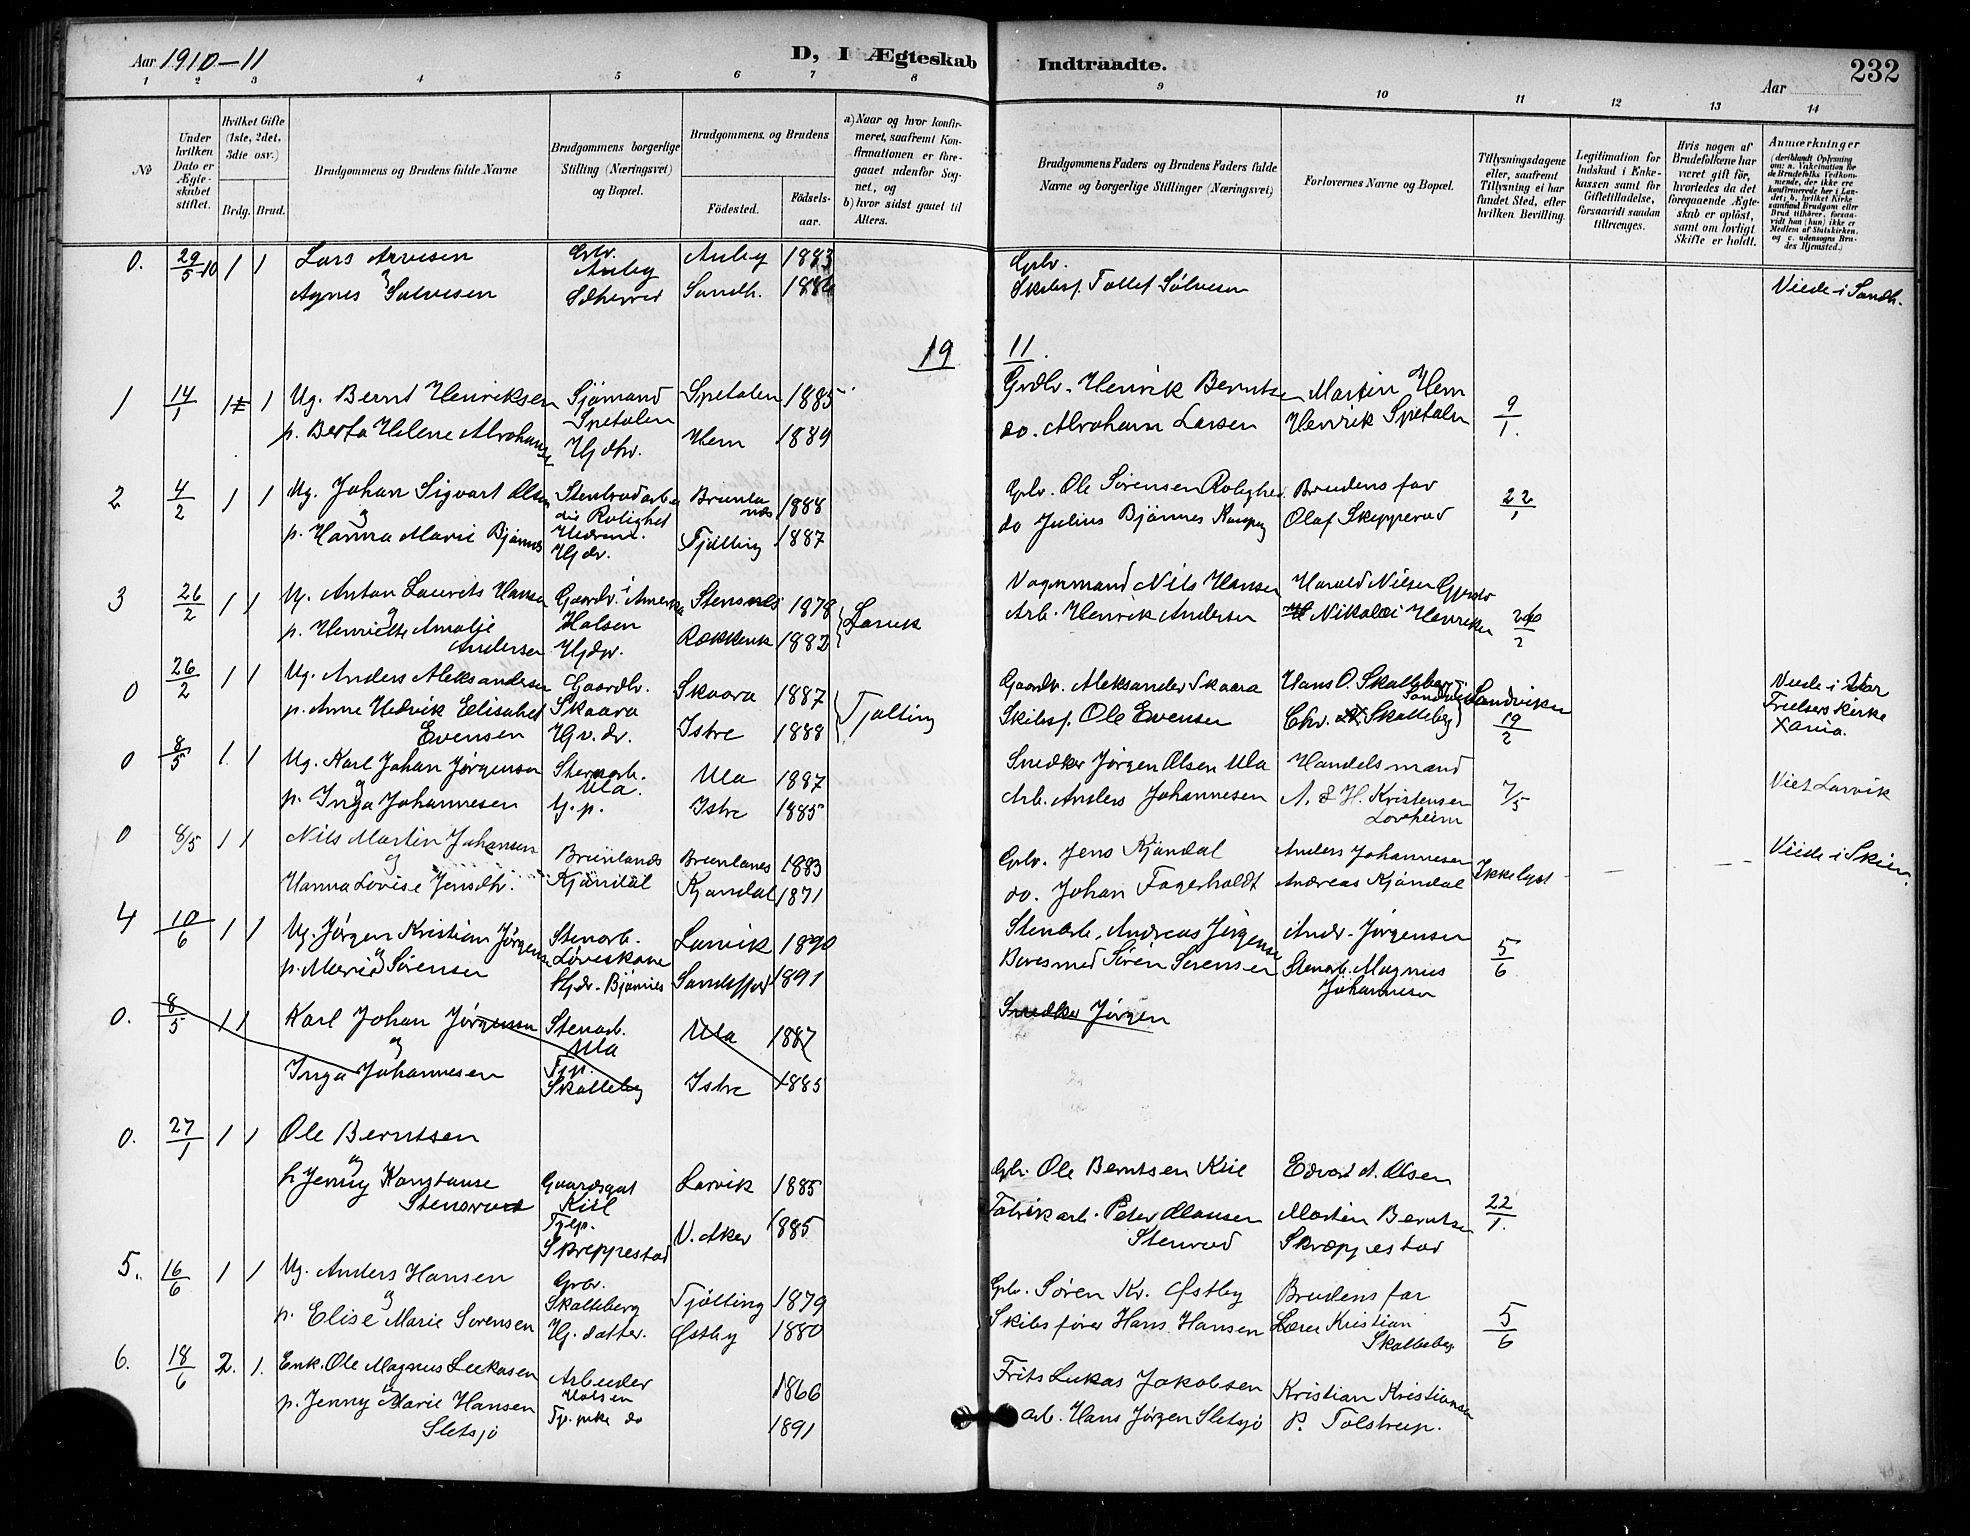 Aar 1910-11
D, I Ægteskab Indtraadte.
Aar
232
1 2 3 4 5 6 7 8 9 10 11 12 13 14
No
Under hvilken Dato er Ægteskabet stiftet.
Hvilket Gifte (1ste, 2det, 3die osv.)
Brdg. Brud.
Brudgommens og Brudens fulde Navne
Brudgommens borgerlige Stilling (Næringsvei) og Bopæl.
Brudgommens. og Brudens
Fødested.
Fødsels-aar.
a) Naar og hvor konfirmeret, saafremt Konfirmationen er foregaaet udenfor Sognet, og
b) hvor sidst gaaet til Alters.
Brudgommens Faders og Brudens Faders fulde Navne og borgerlige Stillinger (Næringsvei)
Forlovernes Navne og Bopæl.
Tillysningsdagene eller, saafremt Tillysning ei har fundet Sted, efter hvilken Bevilling.
Legitimation for Indskud i Enkekassen samt for Giftetilladelse, forsaavidt saadan tiltrænges.
Hvis nogen af Brudefolkene har været gift før, hvorledes da det foregaaende Ægteskab er opløst, samt om lovligt Skifte er holdt.
Anmærkninger
0. 29/5 10 1 1 Lars Arvesen Grbr. Auby Auby 1883 Grbr.
og
Agnes Salvesen Sandh. 1886 Skibsf. Tollef Sølvesen Viede i Sandh.
19 11.
1 14/1 1 1 Ug. Bernt Henriksen Sjømand Spetalen Spetalen 1885 Grdbr. Henrik Berntsen Martin Hem 9/1.
p. Berta Helene Abrahamsen Hjdtr. Hem 1889 do. Abraham Larsen Henrik Spetalen
2 4/2 1 1 Ug. Johan Sigvart Olsen Rolighet Brunlanæs 1888 Grbr. Ole Sørensen Rolighet Brudens far 22/1
og
p. Hanna Marie Bjønnes Hjdr. Tjølling 1887 do Julius Bjønnes Olaf Skipperød
3 26/2 1 1 Ug. Anton Laurits Hansen Gaardbr. i Amerika Stensnes 1878 Larvik Vognmand Nils Hansen Harald Nilsen
og
p. Henriette Amalie Andersen Halsen Hjdr. Rækkevik 1882 Arb. Henrik Andersen Nikolai Henriksen 26/2
0 26/2 1 1 Ug. Anders Aleksandersen Gaardbr. Skaara Skaara 1887 Tjølling Gaardbr. Aleksander Skaara Hans O. Skalleberg Sandviken
p. Anne Hedvik Elisabet Evensen Istre 1888 Skibsf. Ole Evensen Chr. Skalleberg 19/2 Viede i Vor Frelsers kirke Xania.
0 8/5 1 1 Ug. Karl Johan Jørgensen Stenarb. Ula. Ula 1887 Snedker Jørgen Olsen Ula Handelsmand
og
p. Inga Johannesen Istre 1885 Arb. Anders Johannesen A. & H. Kristensen Lovheim 7/5 Viet Larvik
0 8/5 1 1 Nils Martin Johansen Brunlanæs Brunlanes 1883 Grbr. Jens Kjøndal Anders Johannesen Ikke lyst
og
Hanna Lovise Jensdtr. Kjøndal Kjøndal 1871 do. Johan Fagerholdt Andreas Kjøndal Viede i Skien.
4 10/6 1 1 Ug. Jørgen Kristian Jørgensen Stenarb. Løveskove Larvik 1890 Stenarb. Andreas Jørgensen Andr. Jørgensen 5/6
og
p. Marie Sørensen Bjønnes Sandefjord 1891 Søren Sørensen Stenarb. Magnus Johannesen
0. 8/5 1 1 Karl Johan Jørgensen Stenarb. Ula Ula 1887 Snedker Jørgen
og
Inga Johannesen Skalleberg Istre 1885
0. 27/1 1 1 Ole Berntsen Gaardsgut Kiil Larvik 1885 Grbr. Ole Berntsen Kiil Edvard A. Olsen
og
p. Jenny Konstanse Stensrud Skreppestad V. Aker 1885 Fabrikarb. Peter Hansen Stenrød Martin Berntsen Skræppestad 22/1.
5. 16/6 1 1 Ug. Anders Hansen Grbr. Skalleberg Tjölling 1879 Grbr. Søren Kr. Østby Brudens far
og
p. Elise Marie Sørensen Hj. datter. Østby 1880 Skibsfører Hans Hansen Lærer Kristian Skalleberg 5/6
6. 18/6 2. 1. Enk. Ole Magnus Lukasen Arbeider Halsen 1866 Frits Lukas Jakobsen Kristian Kristiansen
og
p. Jenny Marie Hansen Sletsjø Tj. pike do 1891 arb. Hans Jørgen Sletsjø P. Tolstrup.